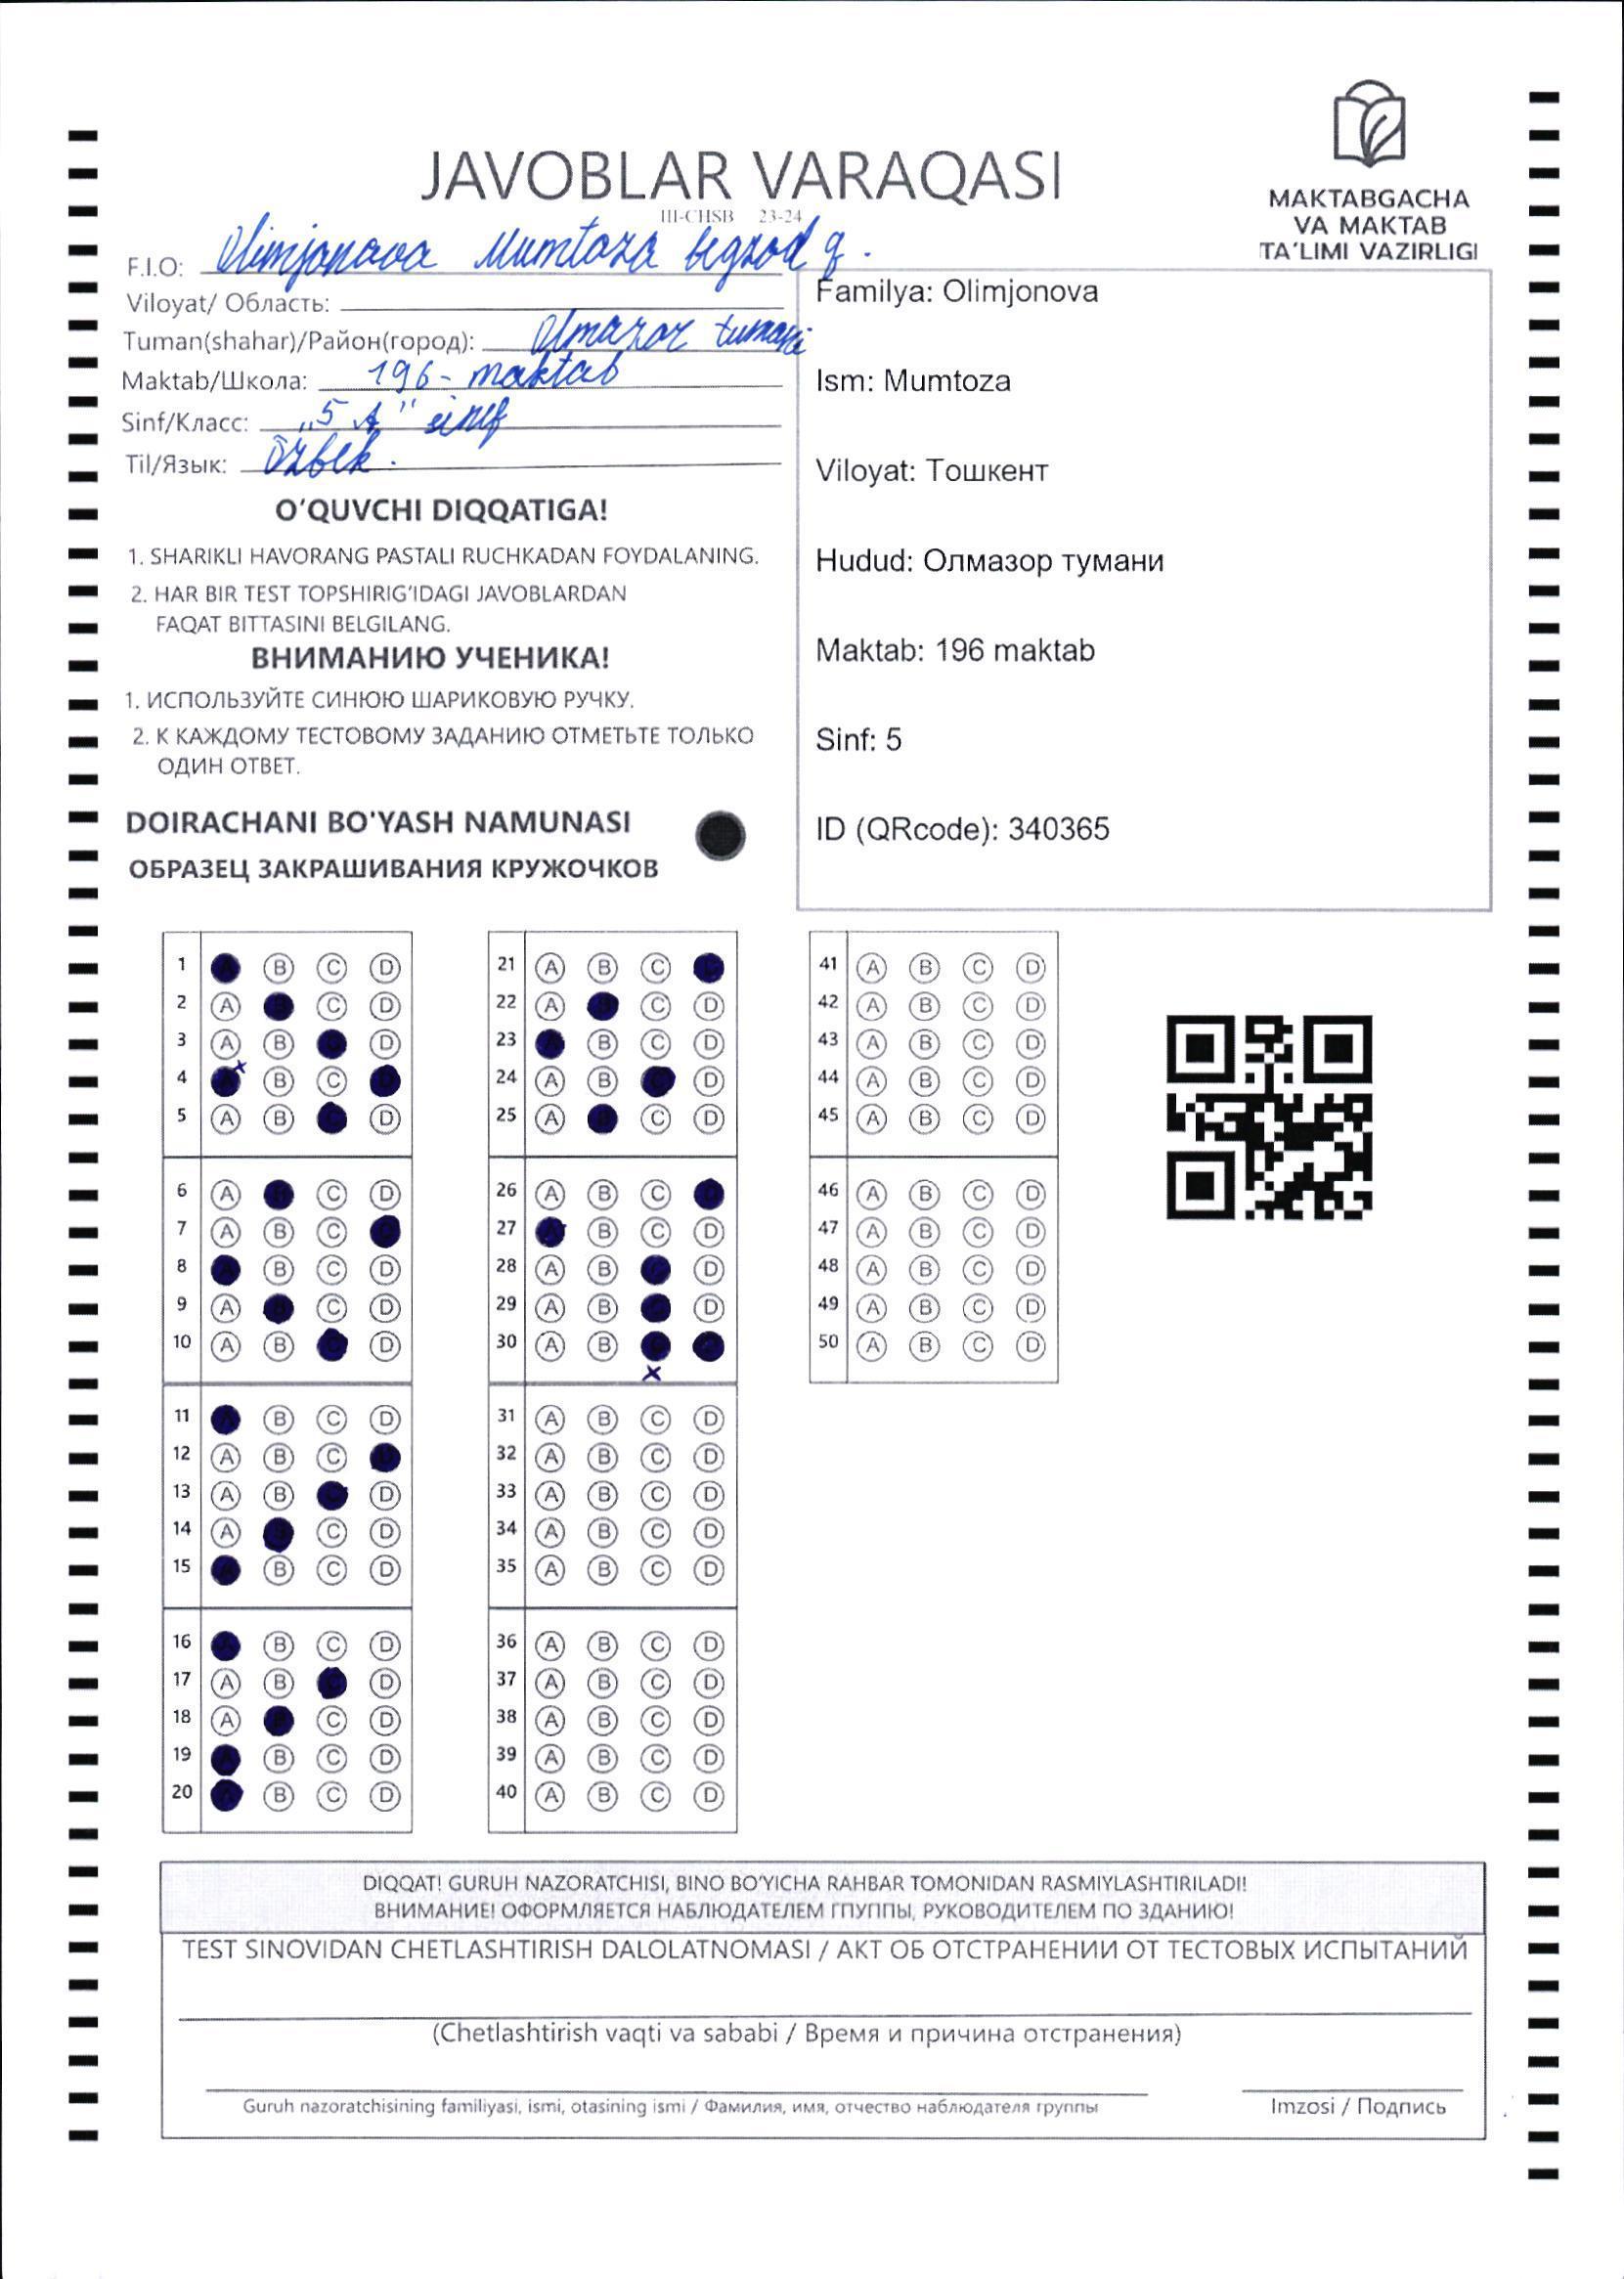 JAVOBLAR VARAQASI
III-CHSB 23-24
MAKTABGACHA
VA MAKTAB
TA'LIMI VAZIRLIGI
F.I.O: Olimjonova Mumtoza Begzod q.
Viloyat/ Область:
Tuman(shahar)/Район(город): Olmazor tumani
Maktab/Школа: 196- maktab
Sinf/Класс: „5 A" sinf
Til/Язык: Õzbek.
O'QUVCHI DIQQATIGA!
1. SHARIKLI HAVORANG PASTALI RUCHKADAN FOYDALANING.
2. HAR BIR TEST TOPSHIRIG'IDAGI JAVOBLARDAN
FAQAT BITTASINI BELGILANG.
ВНИМАНИЮ УЧЕНИКА!
1. ИСПОЛЬЗУЙТЕ СИНЮЮ ШАРИКОВУЮ РУЧКУ.
2. К КАЖДОМУ ТЕСТОВОМУ ЗАДАНИЮ ОТМЕТЬТЕ ТОЛЬКО
ОДИН ОТВЕТ.
DOIRACHANI BO'YASH NAMUNASI
ОБРАЗЕЦ ЗАКРАШИВАНИЯ КРУЖОЧКОВ
Familya: Olimjonova
Ism: Mumtoza
Viloyat: Тошкент
Hudud: Олмазор тумани
Maktab: 196 maktab
Sinf: 5
ID (QRcode): 340365
1 A B C D
2 A B C D
3 A B C D
4 A B C D
5 A B C D
6 A B C D
7 A B C D
8 A B C D
9 A B C D
10 A B C D
11 A B C D
12 A B C D
13 A B C D
14 A B C D
15 A B C D
16 A B C D
17 A B C D
18 A B C D
19 A B C D
20 A B C D
21 A B C D
22 A B C D
23 A B C D
24 A B C D
25 A B C D
26 A B C D
27 A B C D
28 A B C D
29 A B C D
30 A B C D
31 A B C D
32 A B C D
33 A B C D
34 A B C D
35 A B C D
36 A B C D
37 A B C D
38 A B C D
39 A B C D
40 A B C D
41 A B C D
42 A B C D
43 A B C D
44 A B C D
45 A B C D
46 A B C D
47 A B C D
48 A B C D
49 A B C D
50 A B C D
DIQQAT! GURUH NAZORATCHISI, BINO BO'YICHA RAHBAR TOMONIDAN RASMIYLASHTIRILADI!
ВНИМАНИЕ! ОФОРМЛЯЕТСЯ НАБЛЮДАТЕЛЕМ ГПУППЫ, РУКОВОДИТЕЛЕМ ПО ЗДАНИЮ!
TEST SINOVIDAN CHETLASHTIRISH DALOLATNOMASI / АКТ ОБ ОТСТРАНЕНИИ ОТ ТЕСТОВЫХ ИСПЫТАНИЙ
(Chetlashtirish vaqti va sababi / Время и причина отстранения)
Guruh nazoratchisining familiyasi, ismi, otasining ismi / Фамилия, имя, отчество наблюдателя группы
Imzosi / Подпись